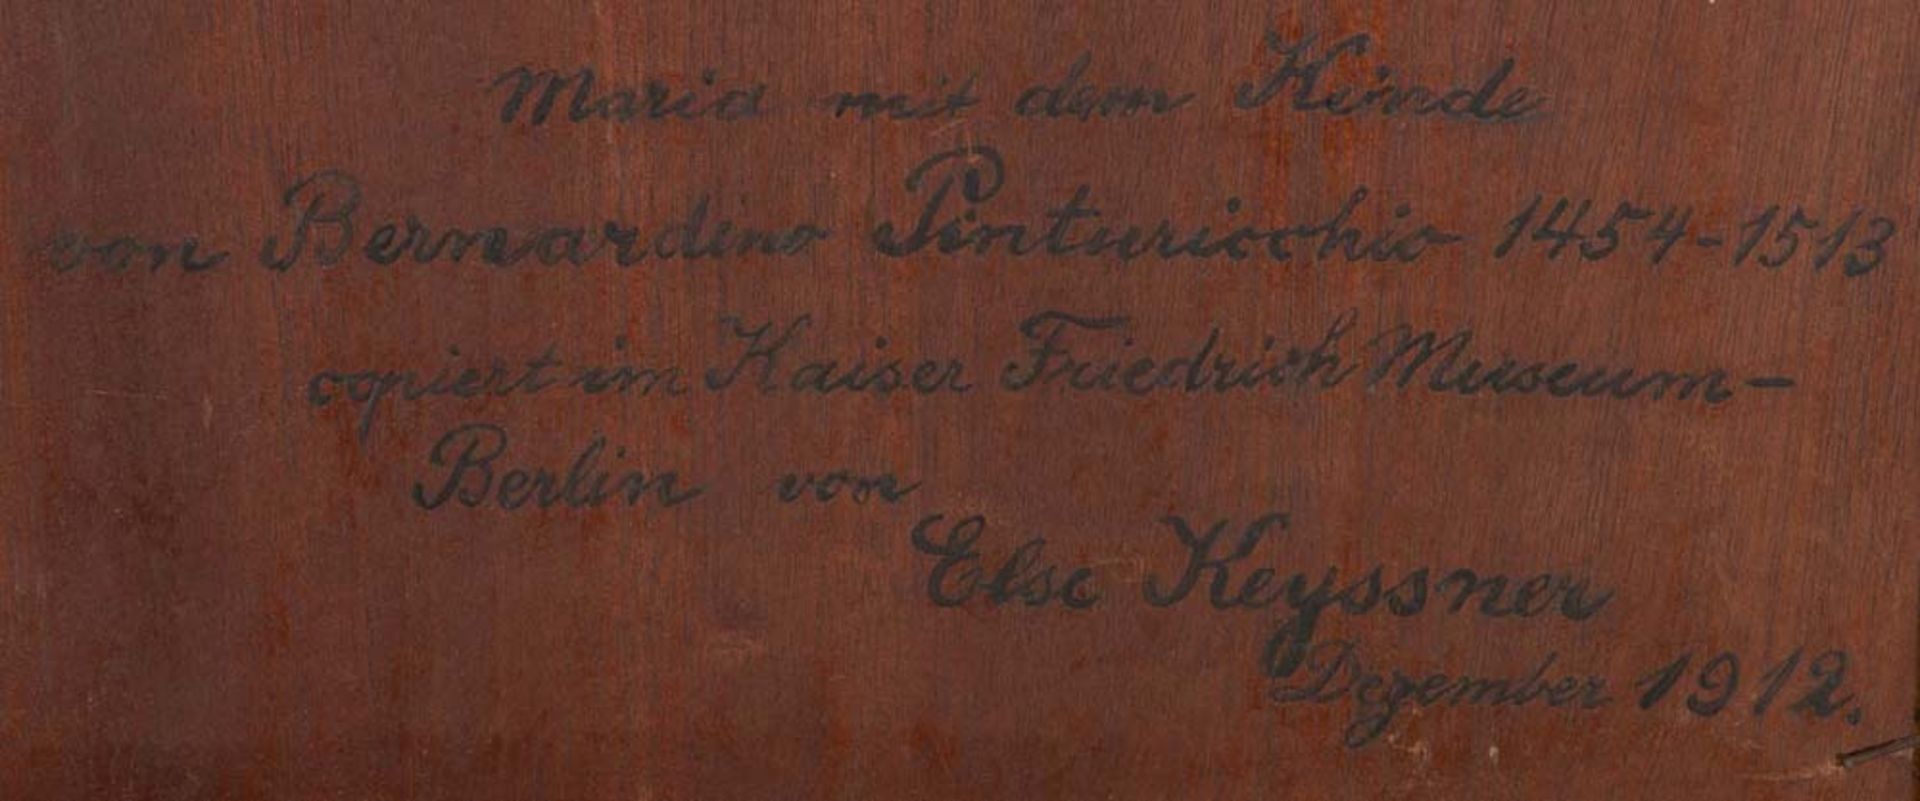 Maria mit dem Kinde
von Bernardino Pinturicchio 1454-1513
copiert im Kaiser Friedrich Museum-
Berlin von
Else Keyssner
Dezember 1912.